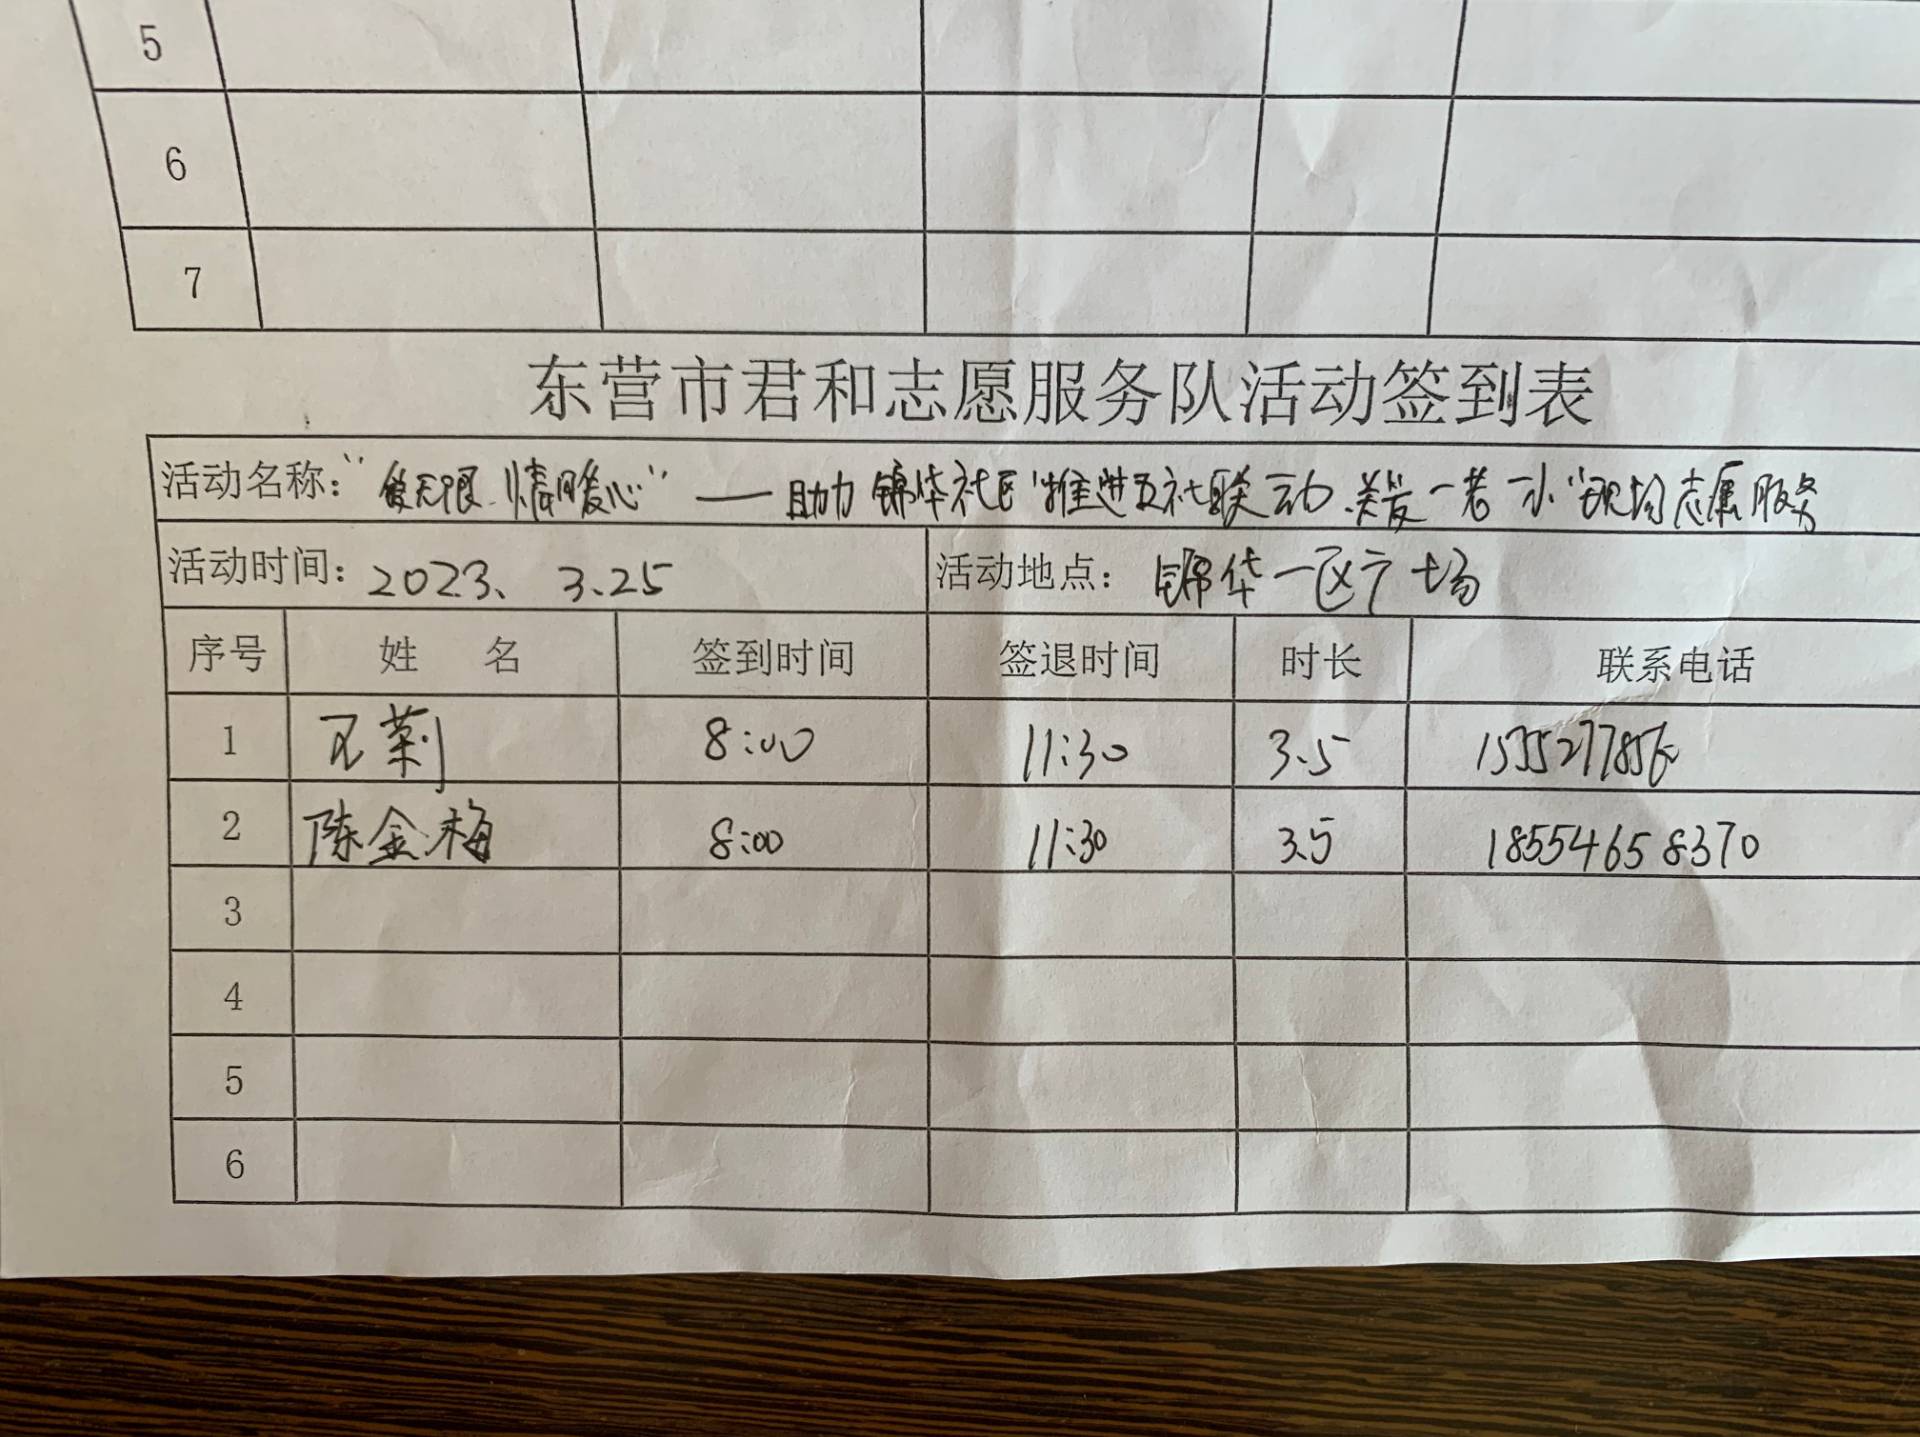 5
6
7
东营市君和志愿服务队活动签到表
活动名称：“爱无限 情暖心”——助力锦华社区“推进五社联动 关爱一老一小”现场志愿服务
活动时间：2023、3.25 活动地点：锦华一区广场
序号 姓 名 签到时间 签退时间 时长 联系电话
1 8:00 11:30 3.5
2 陈金梅 8:00 11:30 3.5 18554658370
3
4
5
6